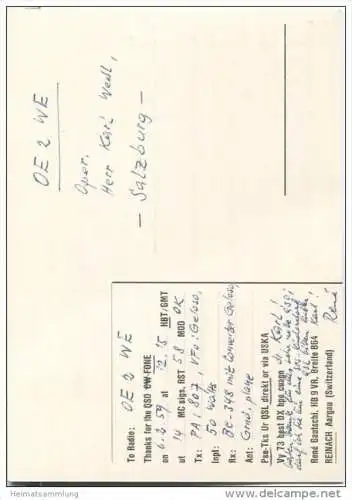 OE 2 WE
Oper.
Herr Karl Weßl,
- Salzburg -
To Radio: OE 2 WE
Thanks for the QSO CW-FONE
on 6.2.59 at 12.15 HBT/GMT
at 14 MC sigs, RST 58 MOD OK
Tx: PA: 807, VFO: Geloso,
Inpt: 50 watts
Rx: BC-348 mit Converter Geloso,
Ant: Grnd. plane
Pse-Tks Ur QSL direkt or via USKA
Vy 73 best DX hpe cuagn dr. Karl!
René Gautschi, HB 9 VR, Breite 864
REINACH Aargau (Switzerland)
René
Heimatsammlung
delcampe.net